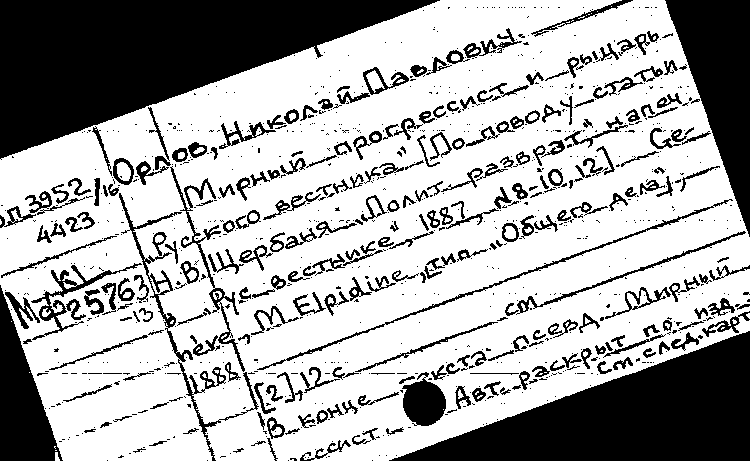 Орлов, Николай Павлович.
Мирный прогрессист и рыцарь
„Русского вестника“ [По поводу статьи
Н.В. Щербаня „Полит. разврат“, напеч.
в „Рус. вестнике“, 1887, №8-10, 12] Ge-
nève, M. Elpidine, тип. „Общего дела“,
1888
[2], 12 с. см
В конце текста псевд.: Мирный
рессист. Авт. раскрыт по изд.:
См. след. карт
3952/16
4423
К1
Мф 25763
-13